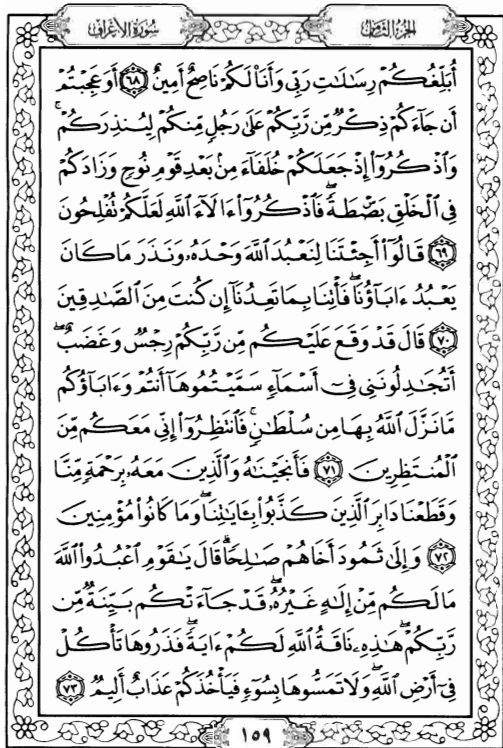 سُورَةُ الأَعْرَافِ الجُزْءُ الثَّامِنُ
أُبَلِّغُكُمْ رِسَٰلَٰتِ رَبِّى وَأَنَا۠ لَكُمْ نَاصِحٌ أَمِينٌ ﴿٦٨﴾ أَوَعَجِبْتُمْ
أَن جَآءَكُمْ ذِكْرٌ مِّن رَّبِّكُمْ عَلَىٰ رَجُلٍ مِّنكُمْ لِيُنذِرَكُمْ ۚ
وَٱذْكُرُوٓا۟ إِذْ جَعَلَكُمْ خُلَفَآءَ مِنۢ بَعْدِ قَوْمِ نُوحٍ وَزَادَكُمْ
فِى ٱلْخَلْقِ بَصْۜطَةً ۖ فَٱذْكُرُوٓا۟ ءَالَآءَ ٱللَّهِ لَعَلَّكُمْ تُفْلِحُونَ
﴿٦٩﴾ قَالُوٓا۟ أَجِئْتَنَا لِنَعْبُدَ ٱللَّهَ وَحْدَهُۥ وَنَذَرَ مَا كَانَ
يَعْبُدُ ءَابَآؤُنَا ۖ فَأْتِنَا بِمَا تَعِدُنَآ إِن كُنتَ مِنَ ٱلصَّٰدِقِينَ
﴿٧٠﴾ قَالَ قَدْ وَقَعَ عَلَيْكُم مِّن رَّبِّكُمْ رِجْسٌ وَغَضَبٌ ۖ
أَتُجَٰدِلُونَنِى فِىٓ أَسْمَآءٍ سَمَّيْتُمُوهَآ أَنتُمْ وَءَابَآؤُكُم
مَّا نَزَّلَ ٱللَّهُ بِهَا مِن سُلْطَٰنٍ ۚ فَٱنتَظِرُوٓا۟ إِنِّى مَعَكُم مِّنَ
ٱلْمُنتَظِرِينَ ﴿٧١﴾ فَأَنجَيْنَٰهُ وَٱلَّذِينَ مَعَهُۥ بِرَحْمَةٍ مِّنَّا
وَقَطَعْنَا دَابِرَ ٱلَّذِينَ كَذَّبُوا۟ بِـَٔايَٰتِنَا ۖ وَمَا كَانُوا۟ مُؤْمِنِينَ
﴿٧٢﴾ وَإِلَىٰ ثَمُودَ أَخَاهُمْ صَٰلِحًا ۗ قَالَ يَٰقَوْمِ ٱعْبُدُوا۟ ٱللَّهَ
مَا لَكُم مِّنْ إِلَٰهٍ غَيْرُهُۥ ۖ قَدْ جَآءَتْكُم بَيِّنَةٌ مِّن
رَّبِّكُمْ ۖ هَٰذِهِۦ نَاقَةُ ٱللَّهِ لَكُمْ ءَايَةً ۖ فَذَرُوهَا تَأْكُلْ
فِىٓ أَرْضِ ٱللَّهِ ۖ وَلَا تَمَسُّوهَا بِسُوٓءٍ فَيَأْخُذَكُمْ عَذَابٌ أَلِيمٌ ﴿٧٣﴾
١٥٩